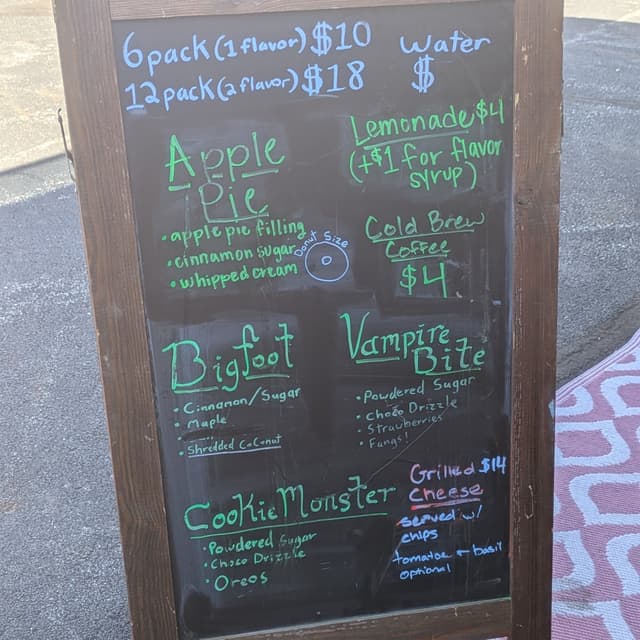 6 pack (1 flavor) $10
12 pack (2 flavor) $18
Water
$
Lemonade $4
(+$1 for flavor
syrup)
Apple
Pie
• apple pie filling
• cinnamon sugar
• whipped cream
Donut Size
Cold Brew
Coffee
$4
Bigfoot
• Cinnamon/Sugar
• Maple
• Shredded CoConut
Vampire
Bite
• Powdered Sugar
• Choco Drizzle
• Strawberries
• Fangs!
Cookie Monster
• Powdered Sugar
• Choco Drizzle
• Oreos
Grilled $14
Cheese
served w/
chips
tomatoe + basil
optional